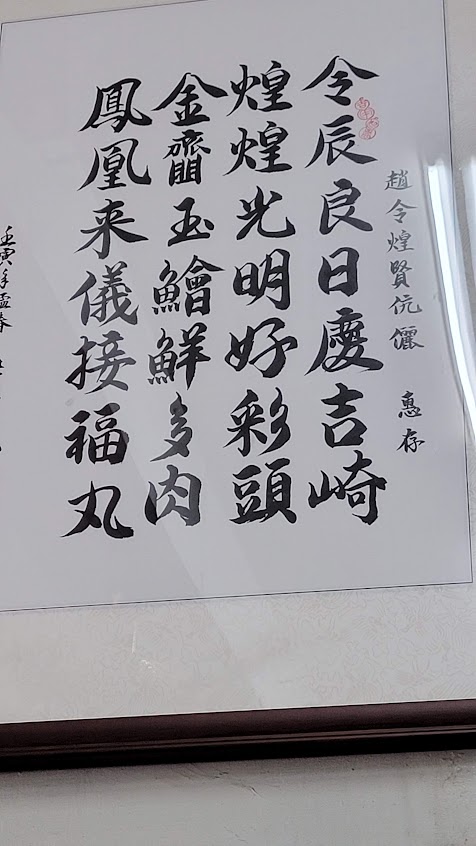 趙令煌賢伉儷 惠存
令辰良日慶吉崎
煌煌光明好彩頭
金齏玉鱠鮮多肉
鳳凰来儀接福丸
壬寅年